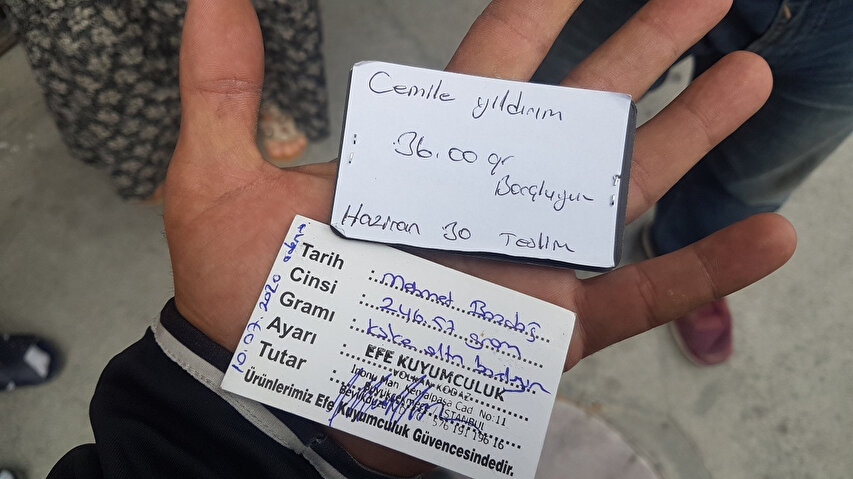 Cemile Yıldırım
36.00 gr
Borçluyum
Haziran 30 Teslim
10.07.2020
Tarih :. Mehmet Bozdağ
Cinsi :. 246.57 gram
Gramı :. külçe altın borcluyum
Ayarı :
Tutar :
EFE KUYUMCULUK
VOLKAN KOÇAZ
İnönü Mah. Kemalpaşa Cad No:11
İSTANBUL
576 191 196 16
Ürünlerimiz Efe Kuyumculuk Güvencesindedir.